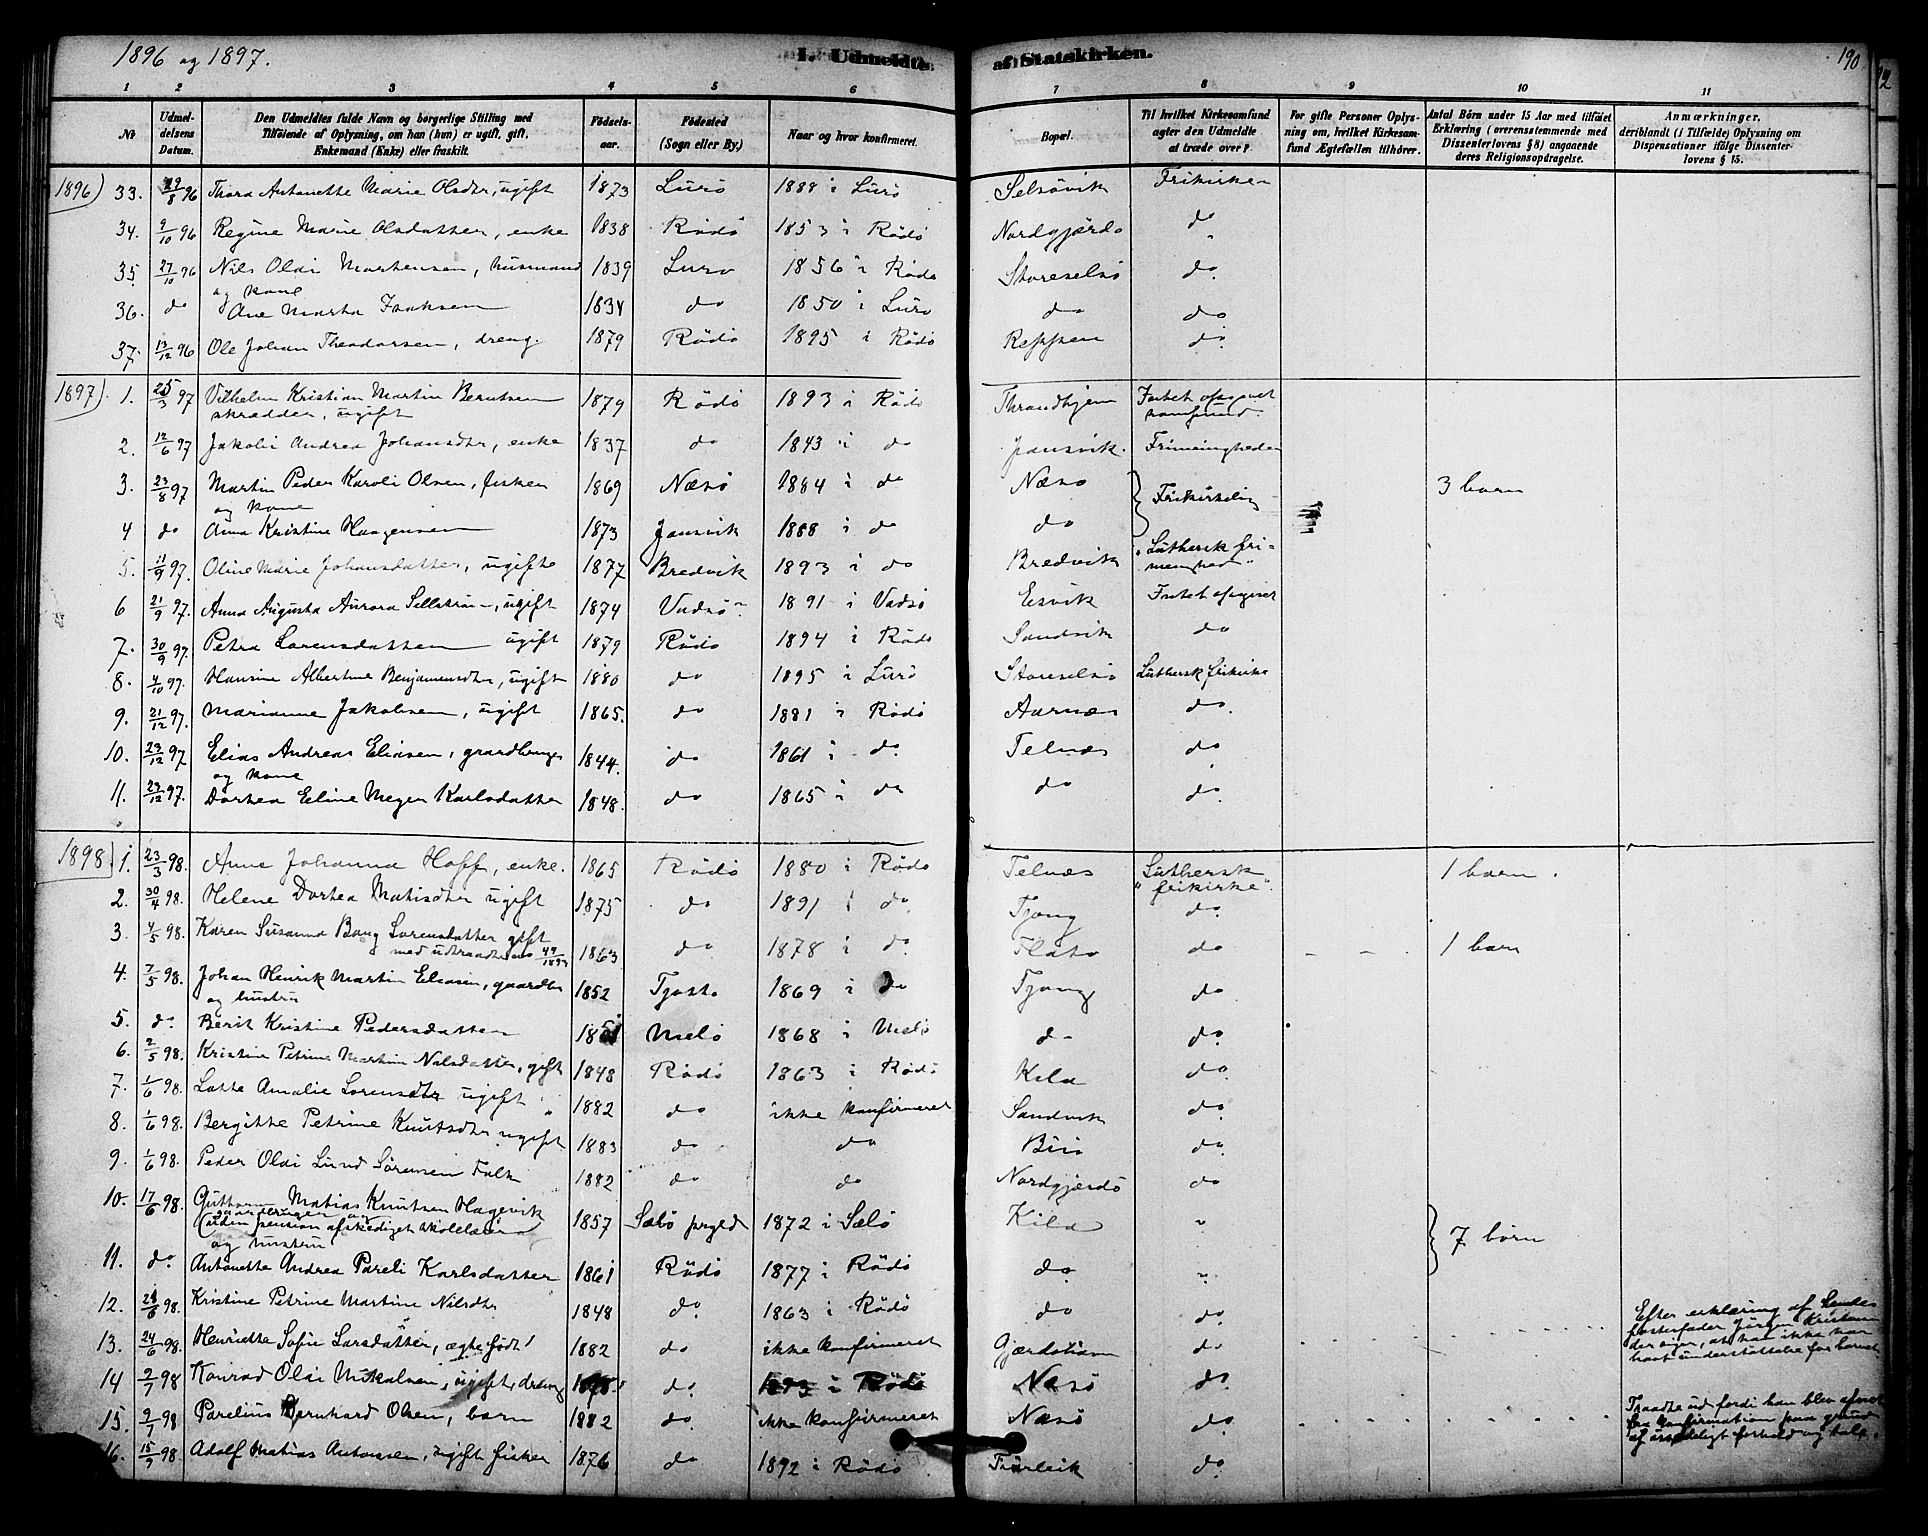 1896 og 1897.
I. Udmeldte af Statskirken.
190
1 2 3 4 5 6 7 8 9 10 11
No
Udmeldelsens Datum.
Den Udmeldtes fulde Navn og borgerlige Stilling med Tilføiende af Oplysning, om han (hun) er ugift, gift, Enkemand (Enke) eller fraskilt.
Fødselsaar.
Fødested (Sogn eller By.)
Naar og hvor konfirmeret.
Bopæl.
Til hvilket Kirkesamfund agter den Udmeldte at træde over?
For gifte Personer Oplysning om, hvilket Kirkesamfund Ægtefællen tilhører.
Antal Børn under 15 Aar med tilføiet Erklæring (overensstemmende med Dissenterlovens § 8) angaaende deres Religionsopdragelse.
Anmærkninger, deriblandt (i Tilfælde) Oplysning om Dispensationer ifølge Dissenterlovens § 15.
1896) 33. 29/8 96 Thora Antonette Marie Olsdtr, ugift 1873 Lurö 1888 i Lurö Selsövik Frikirken
34. 9/10 96 Regine Marie Olsdatter, enke 1838 Rödö 1853 i Rödö Nordgjerdö do
35. 27/10 96 Nils Oldi Mortensen, husmand 1839 Lurö 1856 i Rödö Storeselsö do
og kone
36. do Ane Marta Isaksen 1834 do 1850 i Lurö do do
37. 13/12 96 Ole Johan Theodorsen, dreng. 1879 Rödö 1895 i Rödö Reppen do
1897). 1. 25/3 97 Vilhelm Kristian Martin Berntsen 1879 Rödö 1893 i Rödö Throndhjem Intet opgivet
skrædder, ugift samfund.
2. 12/6 97 Jakobi Andrea Johansdtr, enke 1837 do 1843 i do Jansvik. Frimenigheden
3. 23/8 97 Martin Peder Karoli Olsen, fisker 1869 Næsö 1884 i do Næsö Frikirkelig 3 born
og kone
4 do Anna Kristine Haagensen 1873 Jansvik 1888 i do do
5. 11/9 97. Oline Marie Johansdatter, ugifte 1877 Bredvik 1893 i do Bredvik "Luthersk fri-
menighed"
6 21/9 97. Anna Augusta Aurora Sellström, ugift 1874 Vadsö 1891 i Vadsö Esvik Intet opgivet
7. 30/9 97. Petra Lorensdatter ugift 1879 Rödö 1894 i Rödö Sandvik do
8. 4/10 97. Hansine Albertine Benjaminsdtr, ugift 1880 do 1895 i Lurö Storeselsö Luthersk frikirke
9. 21/12 97. Marianne Jakobsen, ugift 1865. do 1881 i Rödö Aarnæs do.
10. 23/12 97 Elias Andreas Eliasen, gaardbruger 1844. do 1861 i do Telnæs do
og kone
11. 23/12 97. Dortea Eline Meyer Karlsdatter 1848. do 1865 i do do do
1898) 1. 23/3 98. Anne Johanna Hoff, enke. 1865 Rödö 1880 i Rödö Telnæs Luthersk 1 barn.
"frikirke".
2. 30/4 98. Helene Dortea Matisdtr ugift 1875 do 1891 i do Tjong do
3. 4/5 98. Karen Susanna Bang Lorensdatter gift
med udtraadte 1893 1863 do 1878 i do Flatö do 1 barn
4. 7/5 98. Johan Henrik Martin Eliasen, gaardbr 1852 Tjotta 1869 i do Tjong do
og hustru
5. do. Berit Kristine Pedersdatter Melö 1868 i Melö do do.
6. 2/5 98. Kristine Petrine Martine Nilsdatter, gift 1848 Rödö 1863 i Rödö Kila do.
7. 1/6 98. Lotte Amalie Lorensdtr ugift 1882 do ikke konfirmeret Sandvik do
8. 1/6 98. Bergitte Petrine Knutsdtr ugift 1883 do do do.
9. 1/6 98. Peder Oldi Lund Sörensen Falk 1882 do do Nordgjerdö do
10. 17/6 98. Guttorm Matias Knutsen Hagevik 1857 Sælö 1872 i Sælö Kila " 7 börn
(uden pension afskediget skolelærer)
og hustru
11. do. Antonette Andrea Pareli Karlsdatter 1861 Rödö 1877 i Rödö do "
12. 98. Kristine Petrine Martine Nilsdtr 1848 do 1863 i Rödö do do
Efter erklæring af hendes
13. 24/6 98. Henriette Sofie Larsdatter, ægte födt 1882 do ikke konfirmeret do
fosterfader Jörgen Kristensen
der siger, at han ikke har
havt understøttelse for barnet.
14 2/7 98 Konrad Oldi Mikalsen, ugift, dreng do. 1893 i Rödö Næsö do.
15. 9/7 98 Parelius Bernhard Olsen, barn 1882 do. ikke konfirmeret Næsö do
Traadte ud fordi han blev afvist
fra konfirmation paa grund
af forhold og
16. 15/9 98. Adolf Matias Antonsen, ugift fisker 1876 do 1892 i Rödö do